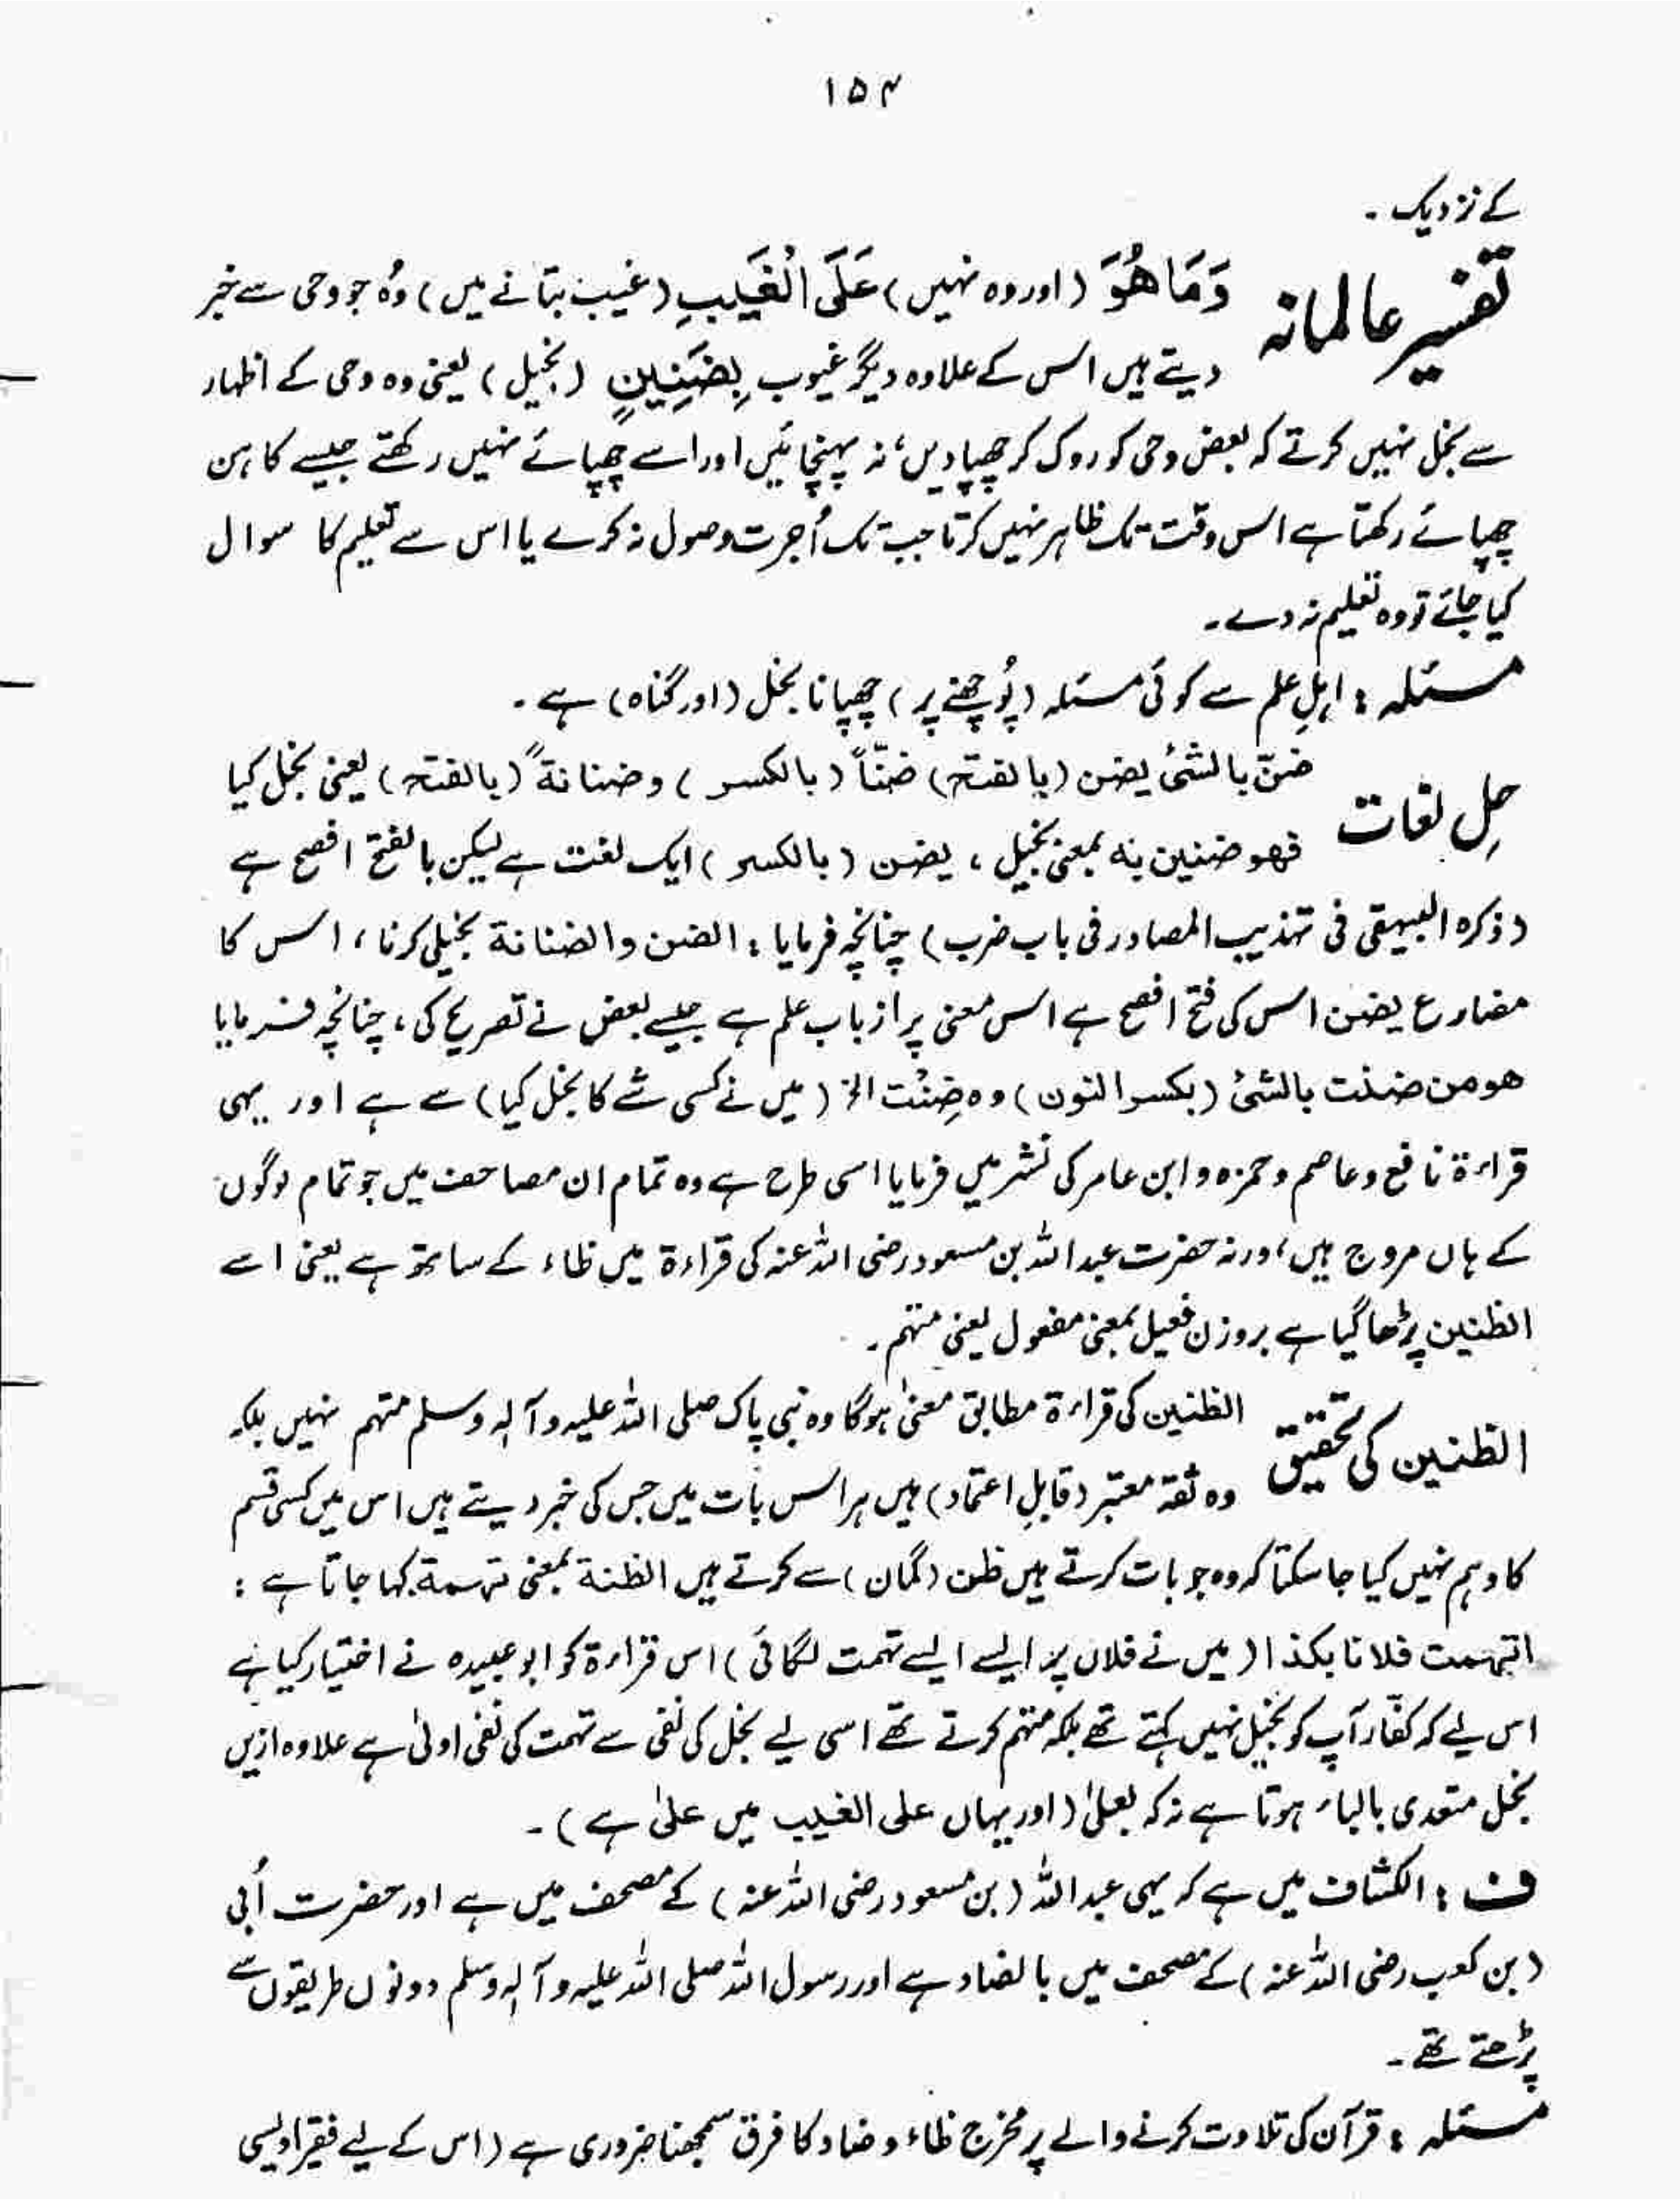 ۱۵۴
کے نزدیک ۔
تفسیر عالمانہ
وَمَا هُوَ (اور وہ نہیں) عَلَى الْغَيْبِ (غیب بتانے میں) وُہ جو وحی سے خبر
دیتے ہیں اس کے علاوہ دیگر غیوب بِضَنِينٍ (بخیل) یعنی وہ وحی کے اظہار
سے بخل نہیں کرتے کہ بعض وحی کو روک کر چھپا دیں، نہ پہنچائیں اور اسے چھپائے نہیں رکھتے جیسے کاہن
چھپائے رکھتا ہے اس وقت تک ظاہر نہیں کرتا جب تک اُجرت وصول نہ کرے یا اس سے تعلیم کا سوال
کیا جائے تو وہ تعلیم نہ دے۔
مسئلہ : اہلِ علم سے کوئی مسئلہ (پُوچھنے پر) چھپانا بخل (اور گناہ) ہے ۔
حلِ لغات
ضنّ بالشئ یضن (بالفتح) ضنّاً (بالکسر) و ضنانةً (بالفتح) یعنی بخل کیا
فھو ضنین بہ بمعنی بخیل ، یضن (بالکسر) ایک لغت ہے لیکن بالفتح افصح ہے
(ذکرہ البیہقی فی تہذیب المصادر فی باب ضرب) چنانچہ فرمایا : الضن و الضنانة بخیلی کرنا ، اس کا
مضارع یضن اس کی فتح افصح ہے اس معنی پر از باب علم ہے جیسے بعض نے تصریح کی، چنانچہ فرمایا
ھو من ضننت بالشئ (بکسر النون) وہ ضِنَنْت الخ (میں نے کسی شے کا بخل کیا) سے ہے اور یہی
قراءۃ نافع و عاصم و حمزہ و ابن عامر کی نشر میں فرمایا اسی طرح ہے وہ تمام ان مصاحف میں جو تمام لوگوں
کے ہاں مروج ہیں، ورنہ حضرت عبداللہ بن مسعود رضی اللہ عنہ کی قراءۃ میں ظاء کے ساتھ ہے یعنی اسے
الظنین پڑھا گیا ہے بروزن فعیل بمعنی مفعول یعنی متہم ۔
الظنین کی تحقیق
الظنین کی قراءۃ مطابق معنٰی ہوگا وہ نبی پاک صلی اللہ علیہ وآلہٖ وسلم متہم نہیں بلکہ
وہ ثقہ معتبر (قابلِ اعتماد) ہیں ہر اس بات میں جس کی خبر دیتے ہیں اس میں کسی قسم
کا وہم نہیں کیا جا سکتا کہ وہ جو بات کرتے ہیں ظن (گمان) سے کرتے ہیں الظنة بمعنی تہمة کہا جاتا ہے :
اتھمت فلانا بکذا (میں نے فلاں پر ایسے ایسے تہمت لگائی) اس قراءۃ کو ابو عبیدہ نے اختیار کیا ہے
اس لیے کہ کفّار آپ کو بخیل نہیں کہتے تھے بلکہ متہم کرتے تھے اسی لیے بخل کی نفی سے تہمت کی نفی اولیٰ ہے علاوہ ازیں
بخل متعدی بالباء ہوتا ہے نہ کہ بعلیٰ (اور یہاں علی الغیب میں علیٰ ہے) ۔
ف : الکشاف میں ہے کہ یہی عبداللہ (بن مسعود رضی اللہ عنہ) کے مصحف میں ہے اور حضرت اُبی
(بن کعب رضی اللہ عنہ) کے مصحف میں بالضاد ہے اور رسول اللہ صلی اللہ علیہ وآلہٖ وسلم دونوں طریقوں سے
پڑھتے تھے ۔
مسئلہ : قرآن کی تلاوت کرنے والے پر مخرج ظاء و ضاد کا فرق سمجھنا ضروری ہے (اس کے لیے فقیر اویسی